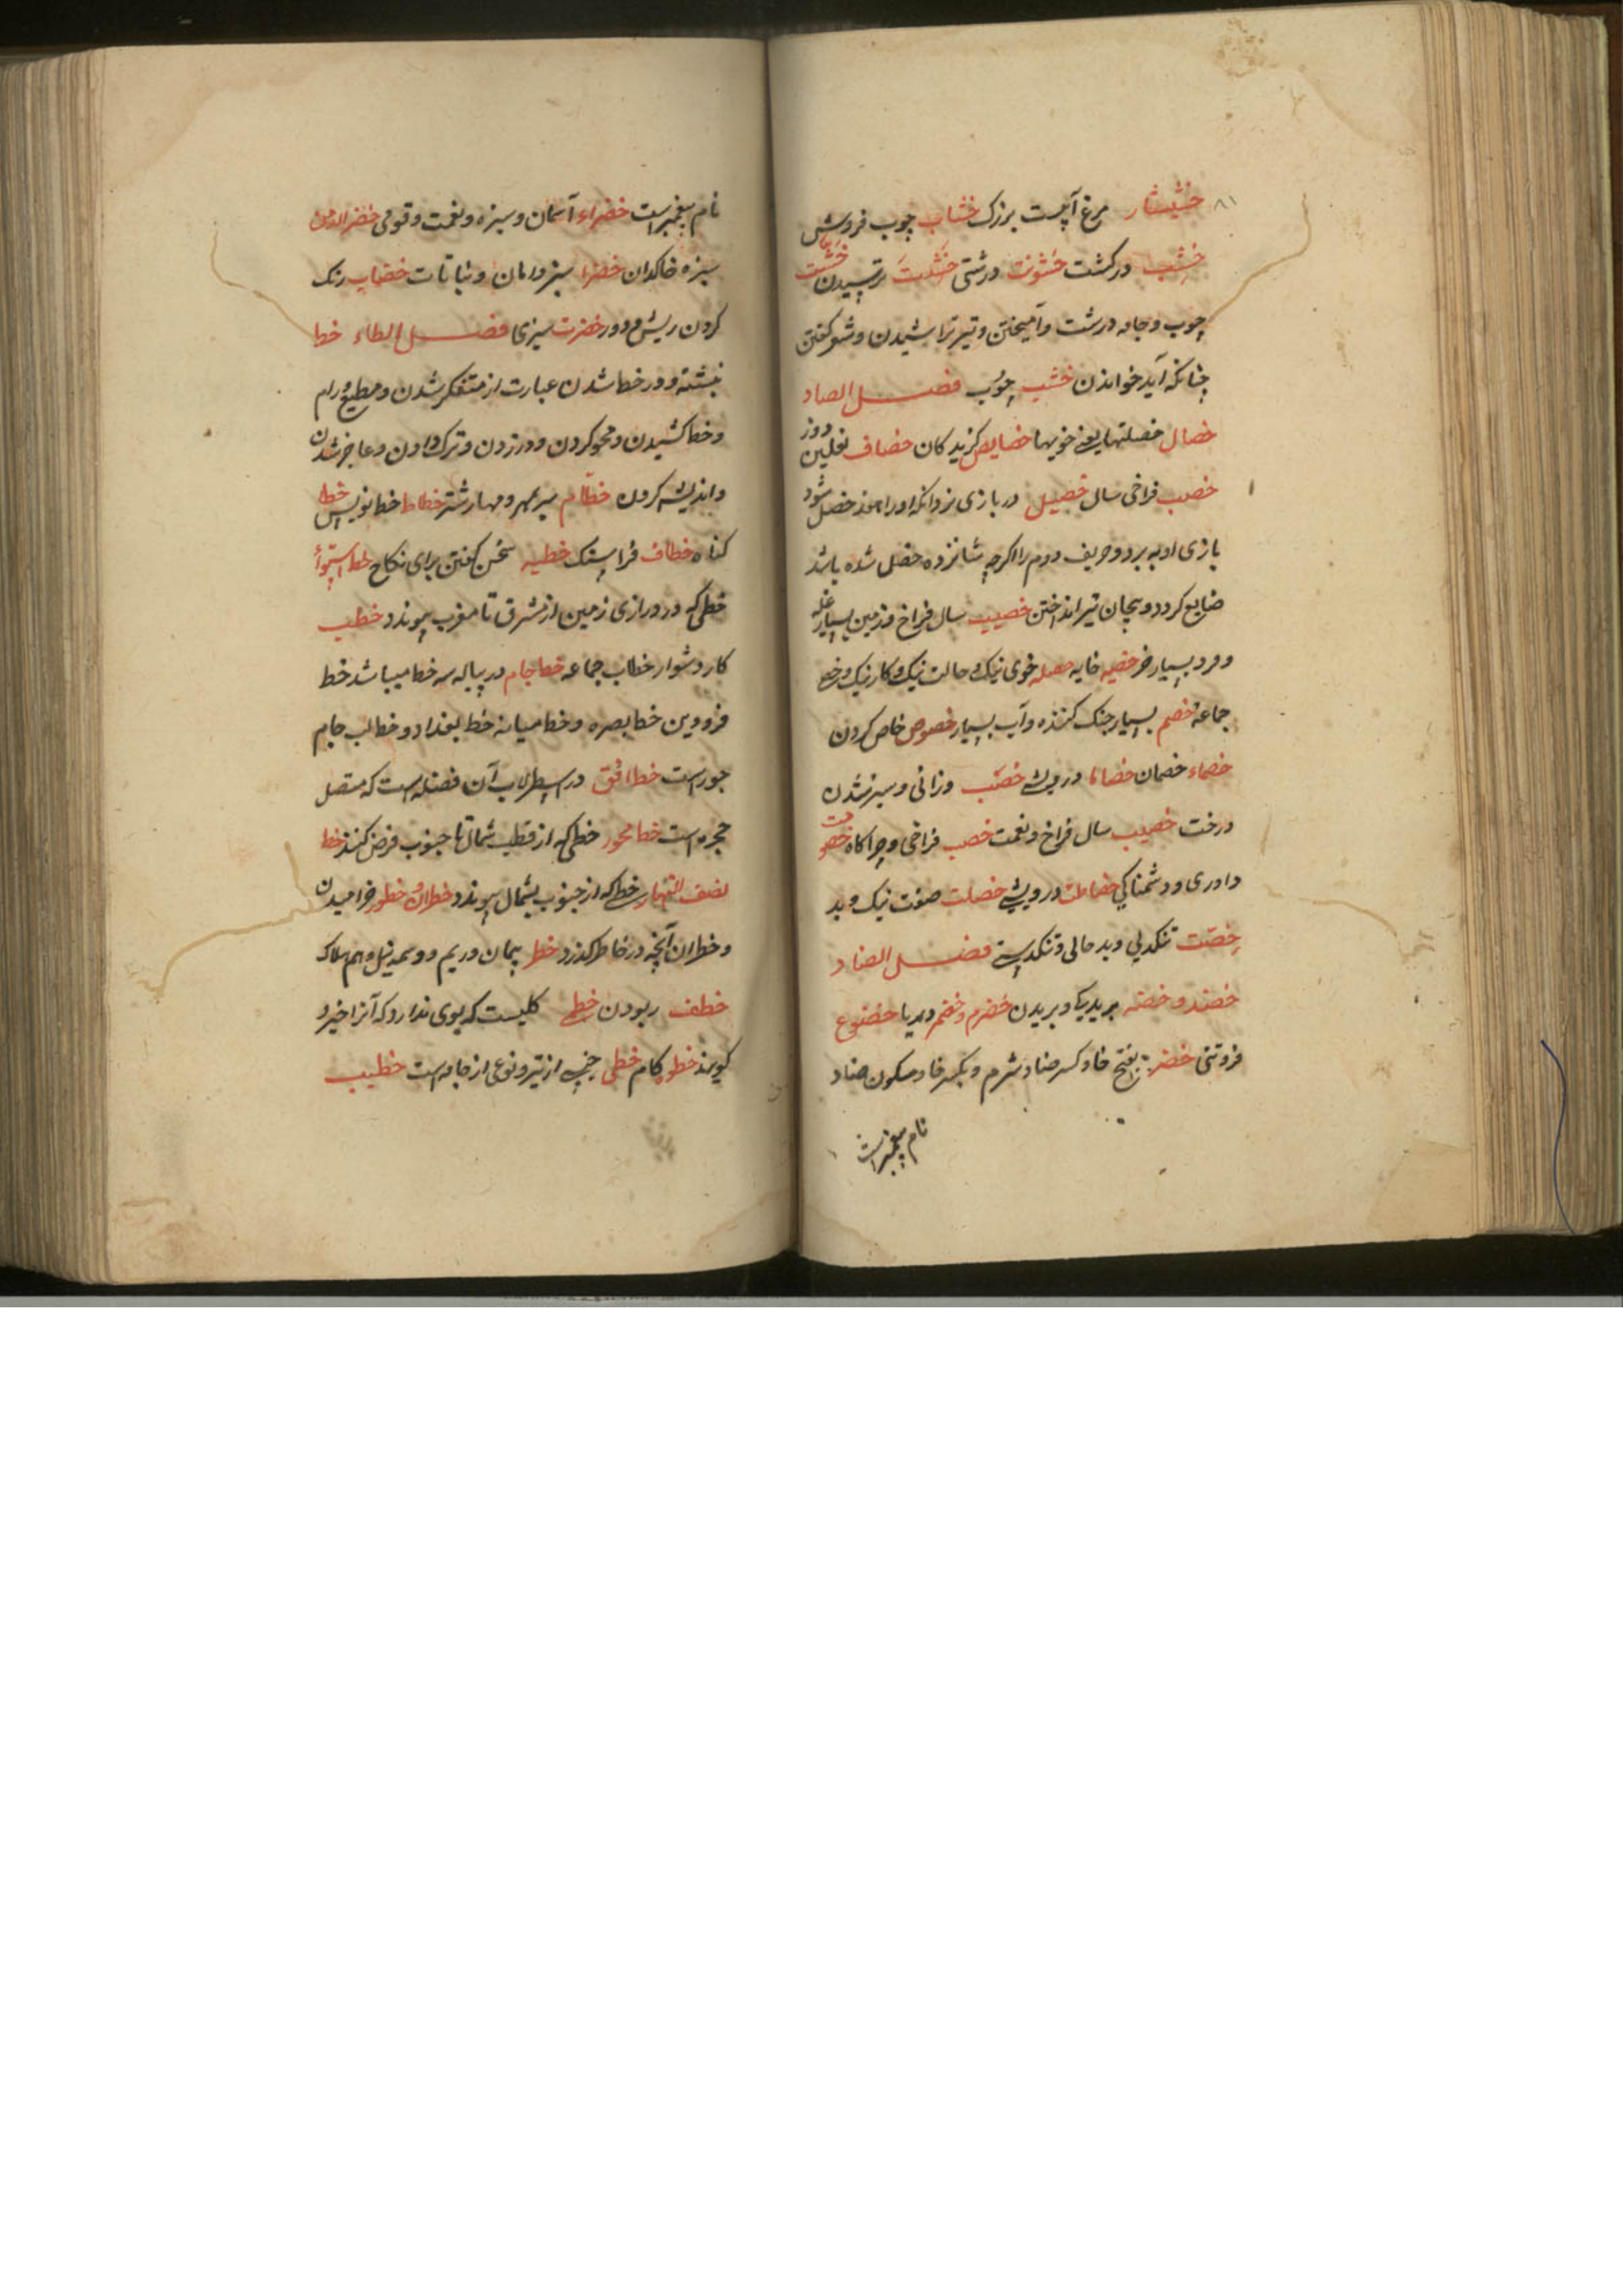 ۸۱
خشیشار مرغ آبیست بزرک خشاب چوب فروش
خشب درکشت خشونت درشتی خشیت ترسیدن
چوب و جامه درشت و آمیختن و تیر تراشیدن و شعر کفتن
چنانکه آید خواندن خشب چوب فصل الصاد
خصال خصلتها یعنی خویها خصایص کزیدکان خصاف نعلین دوز
خصب فراخی سال خصیل در بازی نرد آنکه او را خصل شود
بازی او به برد و حریف دوم را اکرچه شانزده خصل شده باشد
ضایع کردد و بجان تیر انداختن خصیب سال فراخ و زمین بسیار غله
و مرد بسیار خیر خصیه خایه خصله خوی نیک و حالت نیک و کار نیک
جماعة خصم بسیار جنک کننده و آب بسیار خصوص خاص کردن
خصماء خصمان خصاصا درویشی خصب و سبز شدن
درخت خصیب سال فراخ و نعمت خصب فراخی و چراکاه خصومت
داوری و دشمناکی خصاصت درویشی خصلت صفت نیک و بد
خصّت تنکدلی و بد حالی و تنکدستی فصل الضاد
خضد و خضه برید یکا و بریدن خضرم و خضم دریا خضوع
فروتنی خضر بفتح خا و کسر ضاد شرم و بکسر خا و سکون ضاد
نام پیغمبر است
نام پیغمبر است خضراء آسمان و سبزه و نعمت و قومی خضر الدمن
سبزه خاکدان خضرا سبز دامان و نباتات خضاب رنک
کردن ریش و دور خضرت سبزی فصل الطاء خط
نبشته و در خط شدن عبارت از متفکر شدن و مطیع و رام
و خط کشیدن و محو کردن و دور زدن و ترک دادن و عاجز شدن
و اندیشه کردن خطام سر بمهر و مهار شتر خطاط خط نویس خطا
کناه خطاف فراستک خطبه سخن کفتن برای نکاح خط استوا
خطی که در درازی زمین از مشرق تا مغرب پیوندد خطب
کار دشوار خطاب جماعه خط جام در پیاله سه خط میباشد خط
فرودین خط بصره و خط میانه خط بغداد و خط لب جام
جور است خط افق در اسطرلاب آن فضله است که متصل
حجره است خط محور خطی که از قطب شمال تا جنوب فرض کنند خط
نصف النهار خطی که از جنوب بشمال پیوندد خطران و خطور خرامیدن
و خطران آنچه در خاطر کذرد خطر پیمان و ریم و وسمه نیل و هم هلاک
خطف ربودن خطی کلیست که بوی ندارد که آنرا خیرو
کویند خطو کام خطی چیزی از تیر و نوعی از جامه است خطیب